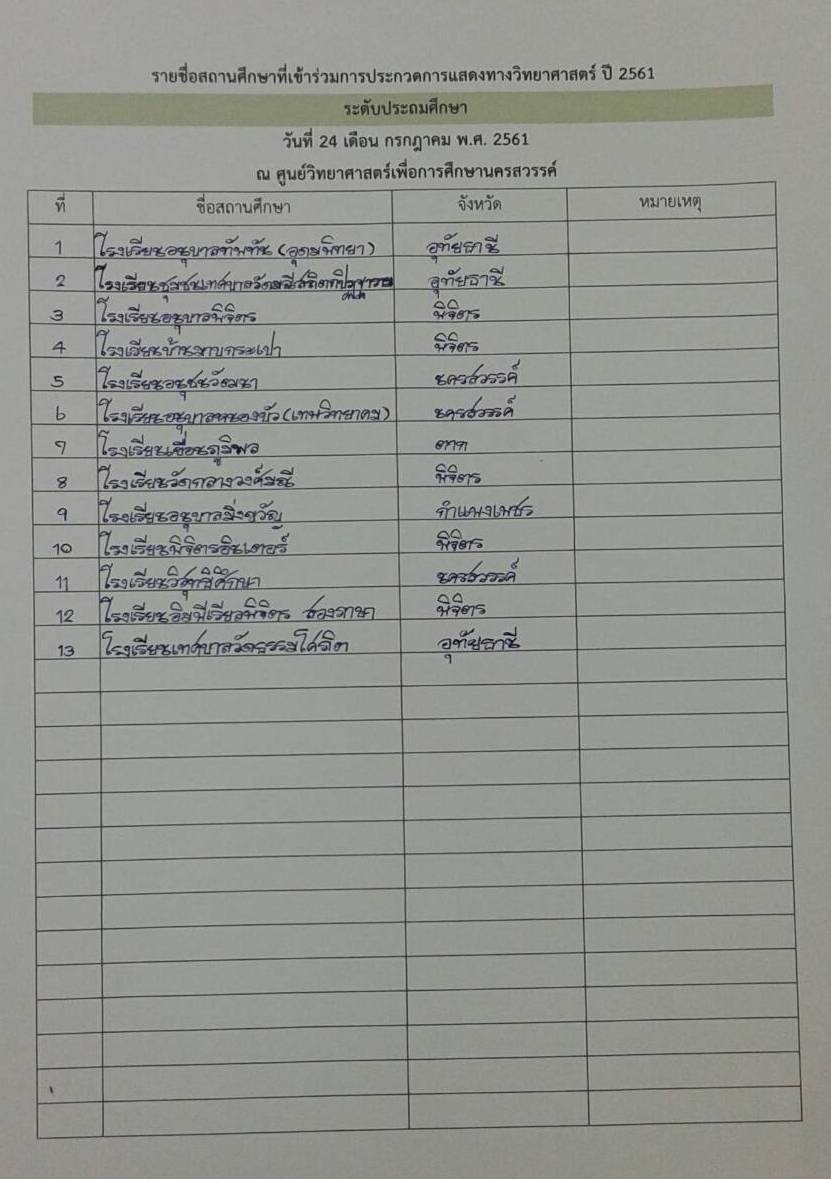 รายชื่อสถานศึกษาที่เข้าร่วมการประกวดการแสดงทางวิทยาศาสตร์ ปี 2561
ระดับประถมศึกษา
วันที่ 24 เดือน กรกฎาคม พ.ศ. 2561
ณ ศูนย์วิทยาศาสตร์เพื่อการศึกษานครสวรรค์
ที่ ชื่อสถานศึกษา จังหวัด หมายเหตุ
1 โรงเรียนอนุบาลทัพทัน (อุดมพิทยา) อุทัยธานี
2 โรงเรียนชุมชนเทศบาลวัดมณีสถิตกปิฏฐาราม อุทัยธานี
3 โรงเรียนอนุบาลพิจิตร พิจิตร
4 โรงเรียนบ้านมาบกระเปา พิจิตร
5 โรงเรียนอนุชนวัฒนา นครสวรรค์
6 โรงเรียนอนุบาลหนองบัว (เทพวิทยาคม) นครสวรรค์
7 โรงเรียนเขื่อนภูมิพล ตาก
8 โรงเรียนวัดกลางวงค์มณี พิจิตร
9 โรงเรียนอนุบาลมิ่งขวัญ กำแพงเพชร
10 โรงเรียนพิจิตรอินเตอร์ พิจิตร
11 โรงเรียนวิสุทธิศึกษา นครสวรรค์
12 โรงเรียนอิมพีเรียลพิจิตร สองภาษา พิจิตร
13 โรงเรียนเทศบาลวัดธรรมโศภิต อุทัยธานี